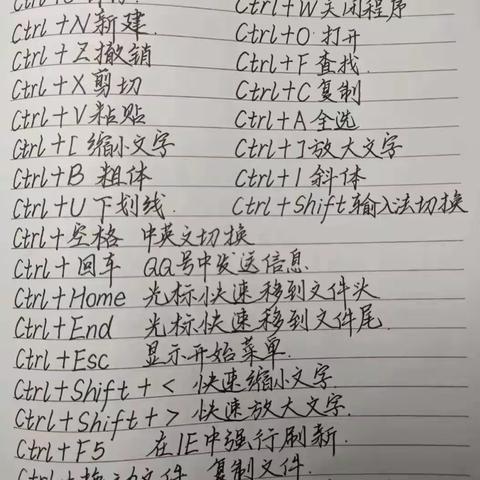 Ctrl+W 关闭程序
Ctrl+N 新建. Ctrl+O 打开
Ctrl+Z 撤销 Ctrl+F 查找.
Ctrl+X 剪切 Ctrl+C 复制
Ctrl+V 粘贴 Ctrl+A 全选
Ctrl+[ 缩小文字 Ctrl+] 放大文字
Ctrl+B 粗体 Ctrl+I 斜体
Ctrl+U 下划线. Ctrl+Shift 输入法切换
Ctrl+空格 中英文切换
Ctrl+回车 QQ号中发送信息.
Ctrl+Home 光标快速移到文件头
Ctrl+End 光标快速移到文件尾.
Ctrl+Esc 显示开始菜单.
Ctrl+Shift+< 快速缩小文字.
Ctrl+Shift+> 快速放大文字.
Ctrl+F5 在IE中强行刷新.
Ctrl+拖动文件 复制文件.